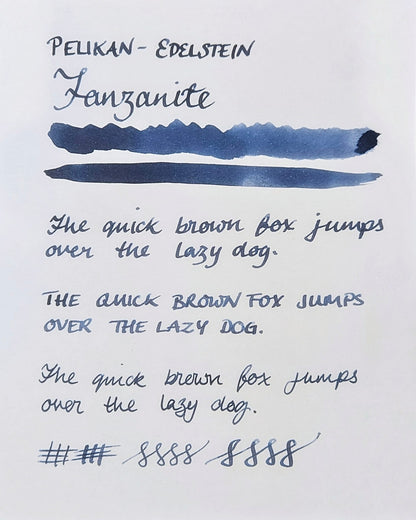 PELIKAN - EDELSTEIN
Tanzanite
The quick brown fox jumps
over the lazy dog.
THE QUICK BROWN FOX JUMPS
OVER THE LAZY DOG.
The quick brown fox jumps
over the lazy dog.